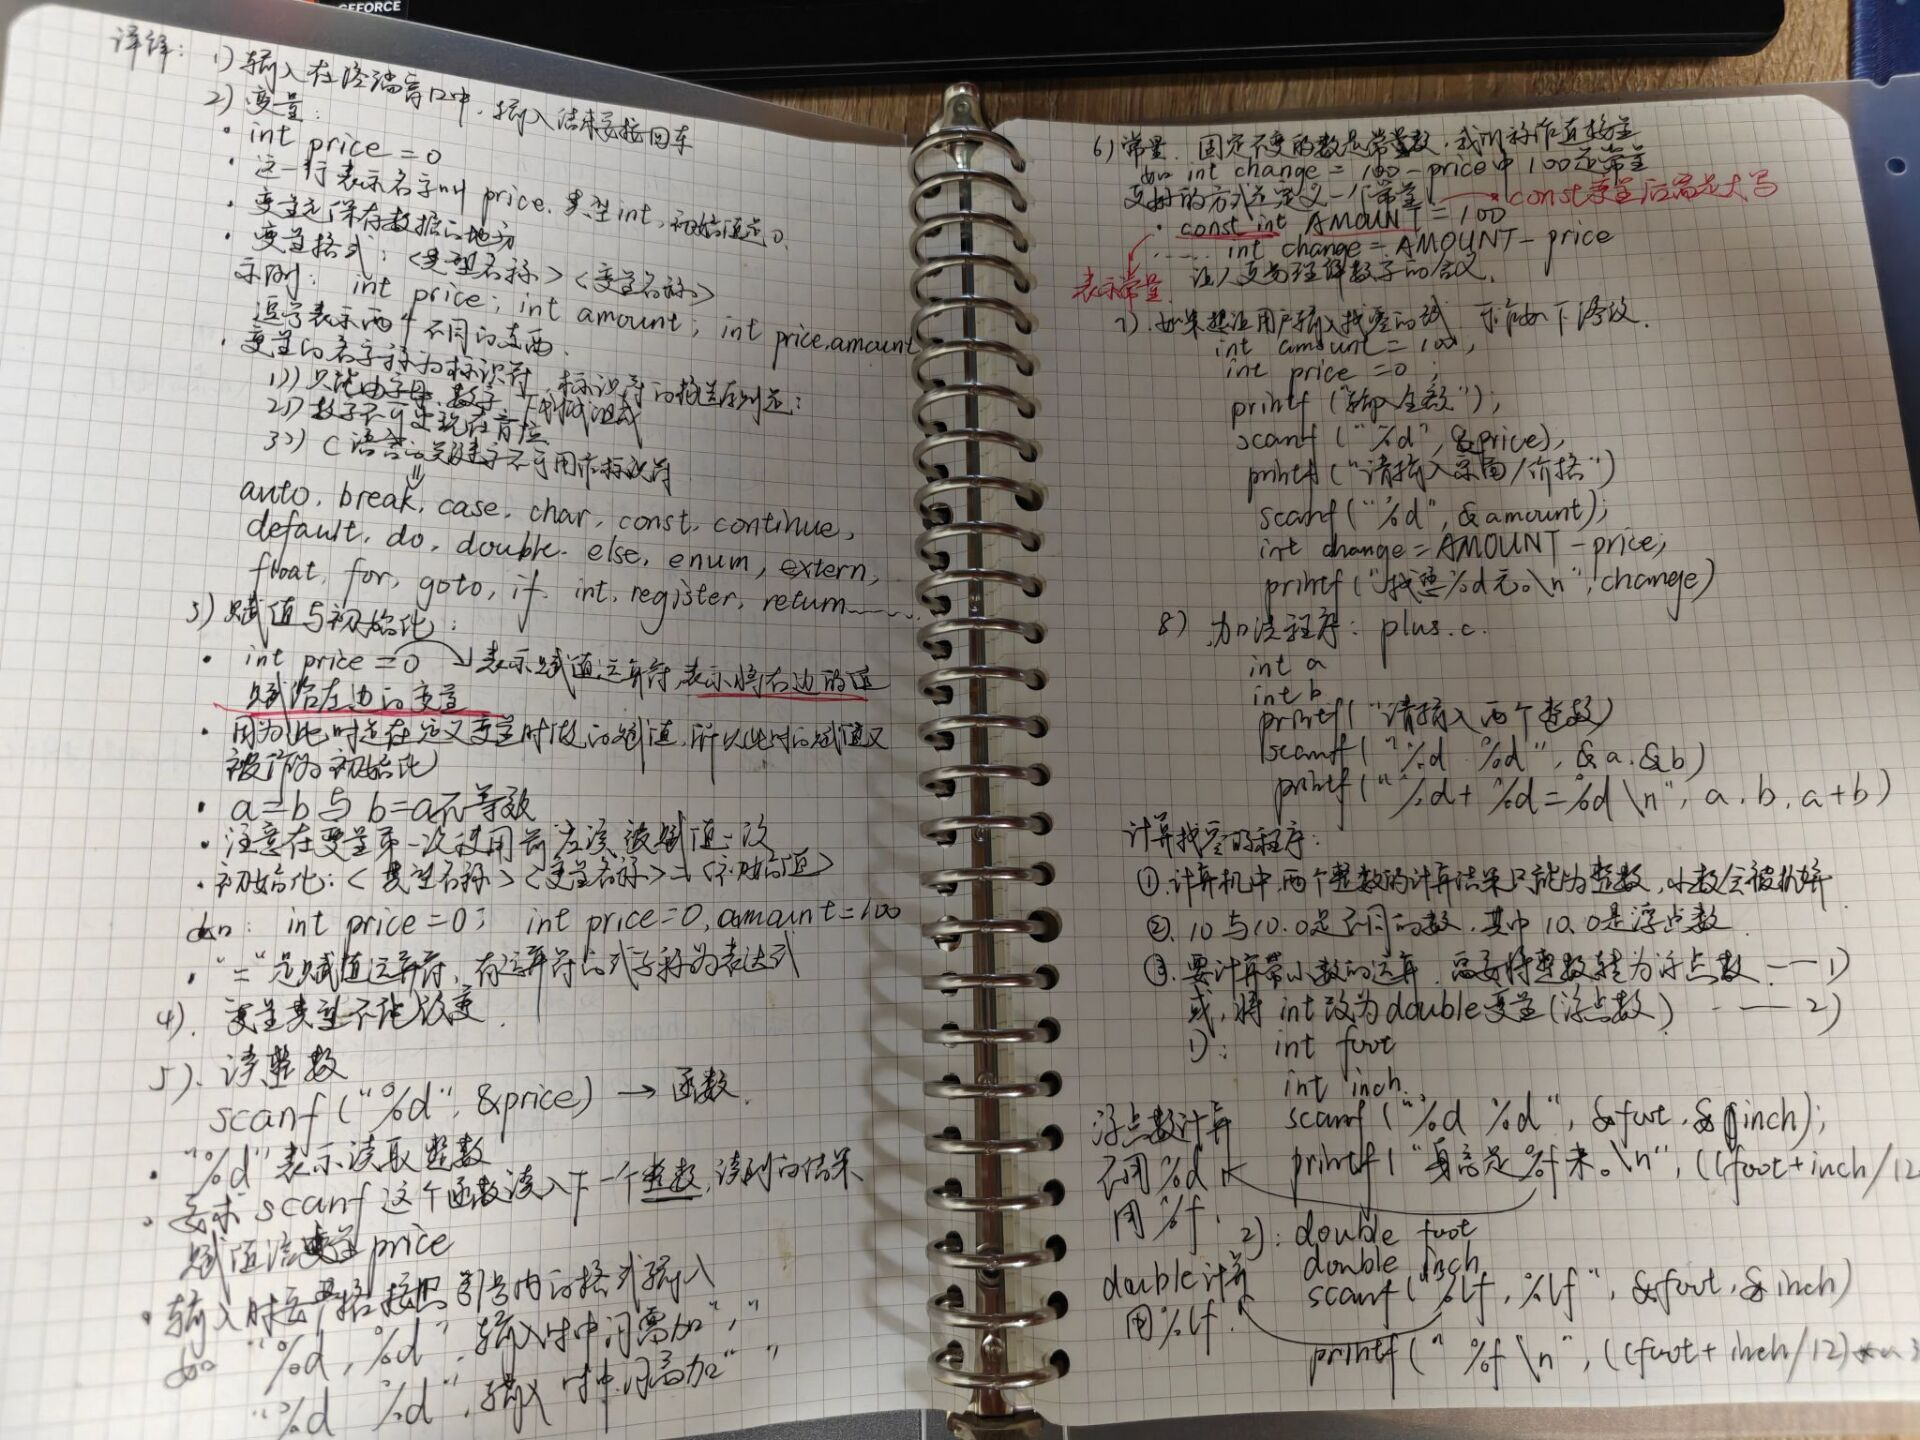 GEFORCE
详解: 1) 输入在终端窗口中,输入结束要按回车
2) 变量:
· int price = 0
· 这一行表示名字叫 price, 类型 int, 初始值是0.
· 变量是保存数据的地方
· 变量格式: <类型名称> <变量名称>
示例: int price; int amount; int price,amount
逗号表示两个不同的东西.
· 变量的名字称为标识符, 标识符的构造原则是:
1)) 只能由字母、数字、下划线组成
2)) 数字不可出现在首位
3)) C语言的关键字不可用作标识符
auto, break, case, char, const, continue,
default, do, double, else, enum, extern,
float, for, goto, if, int, register, return......
3) 赋值与初始化:
· int price = 0 → 表示赋值运算符,表示将右边的值
赋给左边的变量
· 因为此时是在定义变量时做的赋值,所以此时的赋值又
被称为初始化
· a=b 与 b=a 不等效
· 注意在变量第一次被使用前应该被赋值一次
· 初始化: <类型名称> <变量名称> = <初始值>
如: int price=0; int price=0, amount=100
· "=" 是赋值运算符, 有运算符的式子称为表达式
4). 变量类型不能改变.
5). 读整数
scanf ("%d", &price) → 函数.
· "%d" 表示读取整数
· 要求 scanf 这个函数读入下一个整数,读到的结果
赋值给变量 price
· 输入时要严格按照引号内的格式输入
如 "%d, %d", 输入时中间需加","
"%d %d", 输入时中间需加" "
6) 常量. 固定不变的数是常数,我们称作直接量
如 int change = 100 - price 中 100 是常量
更好的方式是定义一个常量. → const 变量后需是大写
· const int AMOUNT = 100
...... int change = AMOUNT - price
表示常量 让人更易理解数字的含义.
7). 如果想让用户输入找零的试 下作如下修改.
int amount = 100,
int price = 0;
printf ("输入金额");
scanf ("%d", &price),
printf ("请输入票面/价格")
scanf ("%d", &amount);
int change = AMOUNT - price;
printf ("找您%d元。\n", change)
8) 加法程序: plus.c.
int a
int b
printf("请输入两个整数)
scanf("%d %d", &a, &b)
printf("%d+ %d=%d \n", a, b, a+b)
计算找零的程序:
①.计算机中,两个整数的计算结果只能为整数,小数会被扔掉
②. 10与10.0是不同的数,其中10.0是浮点数
③.要计算带小数的运算,需要将整数转为浮点数 —— 1)
或, 将 int 改为 double 变量(浮点数) —— 2)
1): int foot
int inch.
浮点数计算 scanf ("%d %d", &foot, &inch);
不用%d printf ("身高是%f米。\n", ((foot+inch/12
用%f. 2): double foot
double inch
double计算 scanf("%lf, %lf", &foot, &inch)
用%lf. printf(" %f \n", ((foot+inch/12)